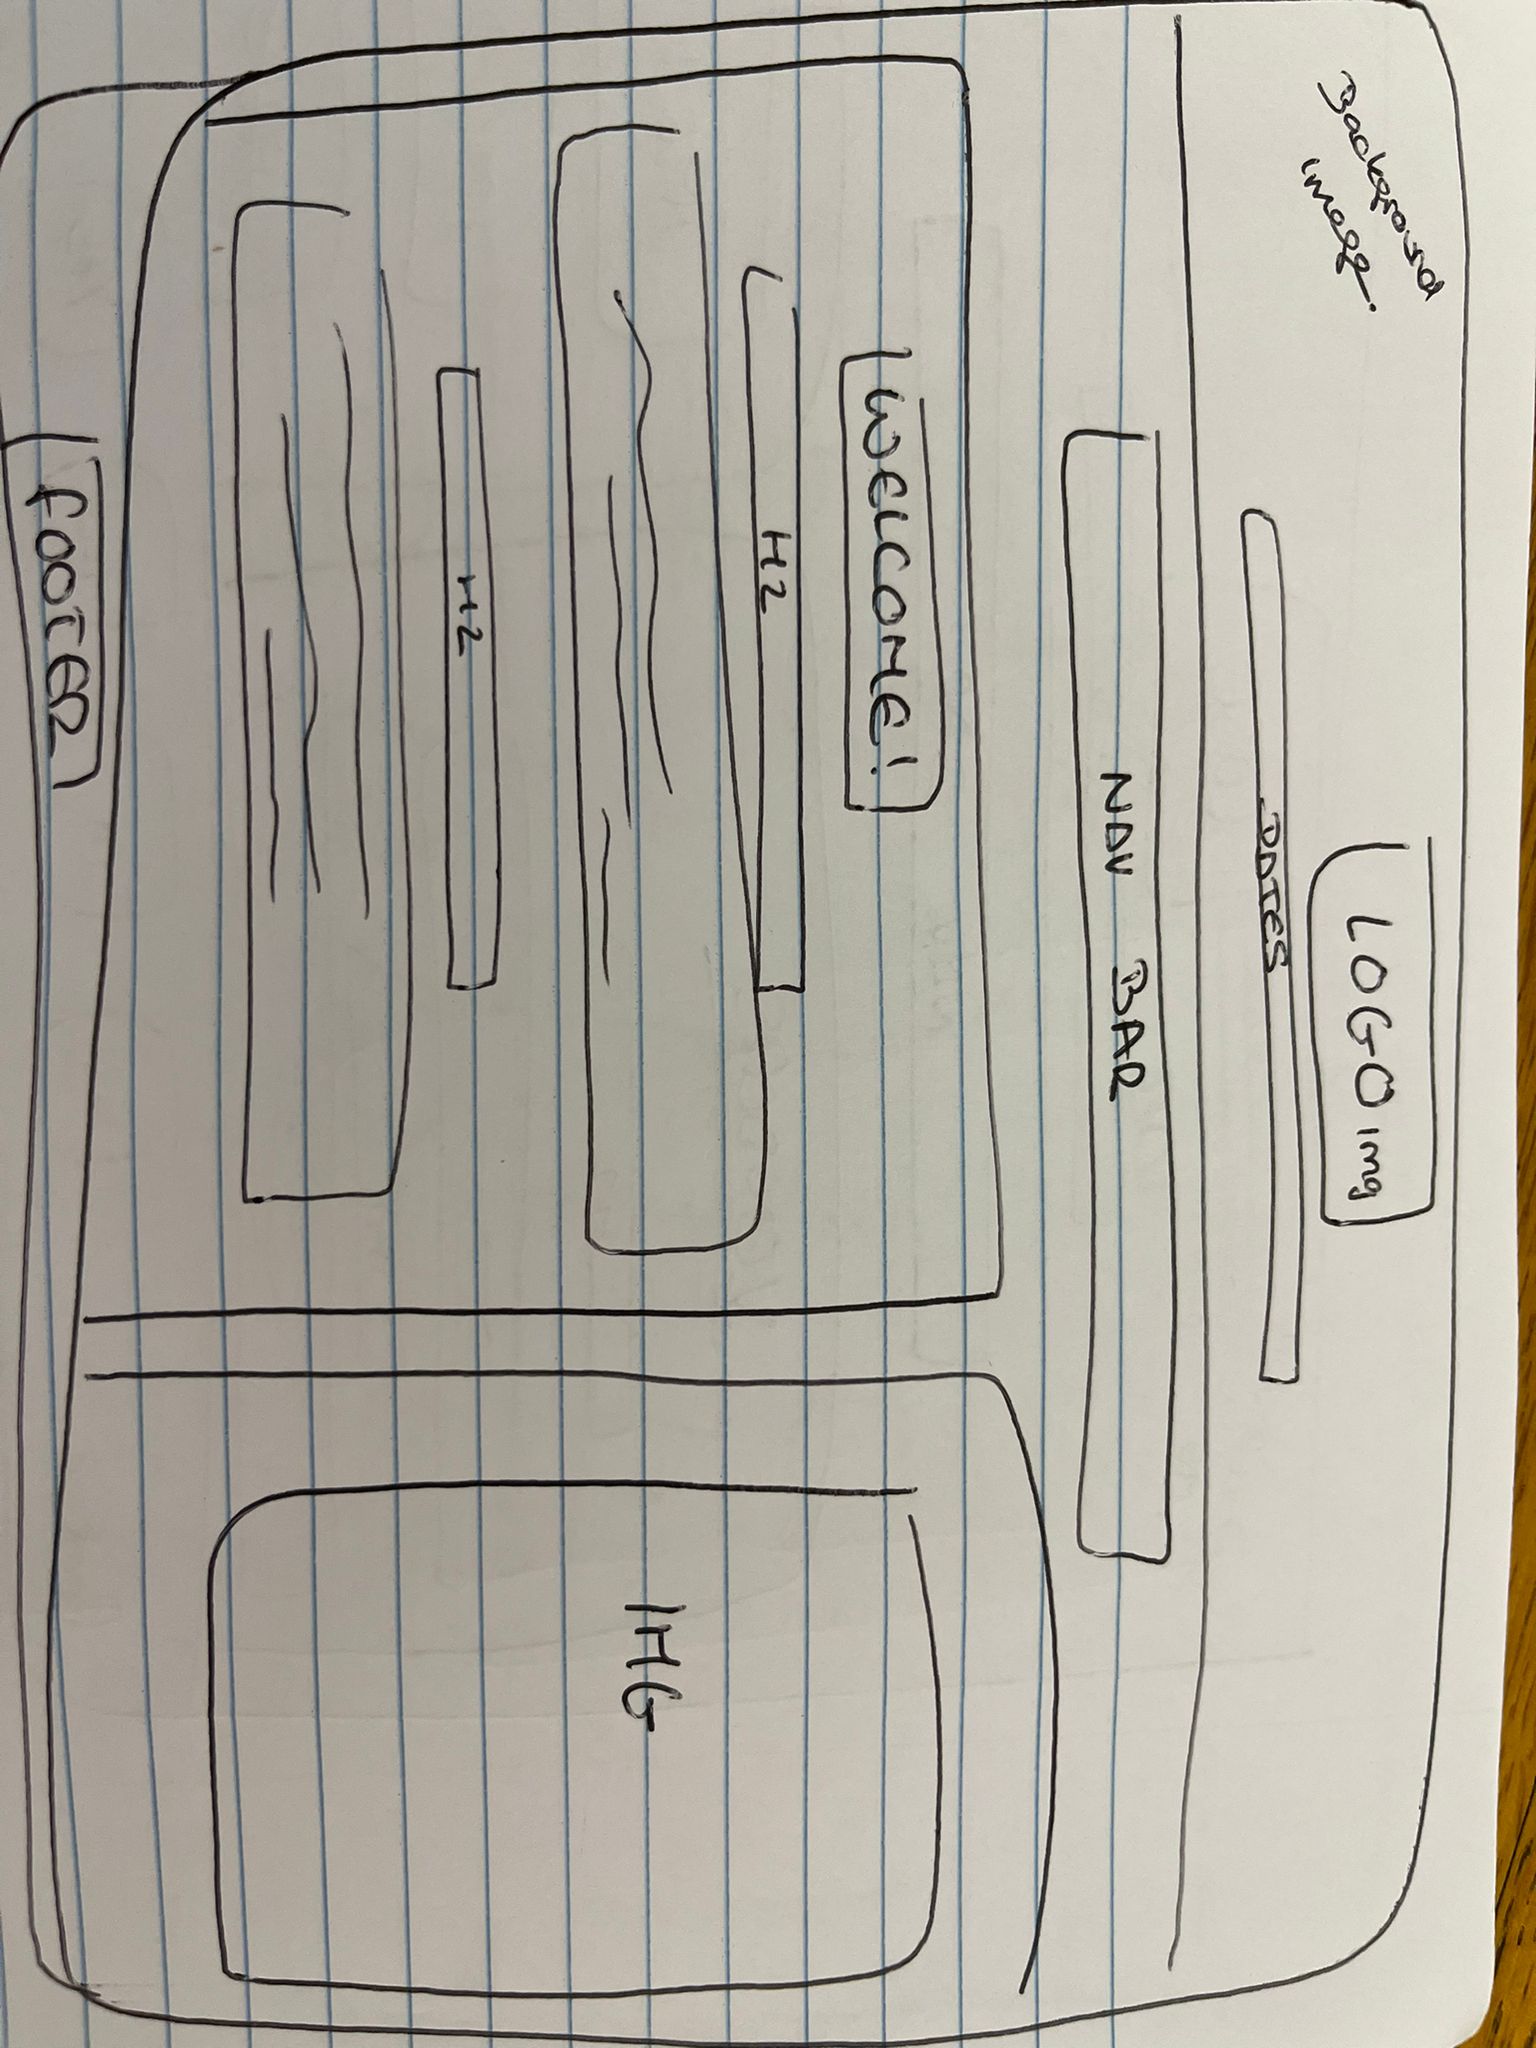 Background
image.
LOGO img
DATES
NAV BAR
WELCOME!
H2
IMG
H2
FOOTER